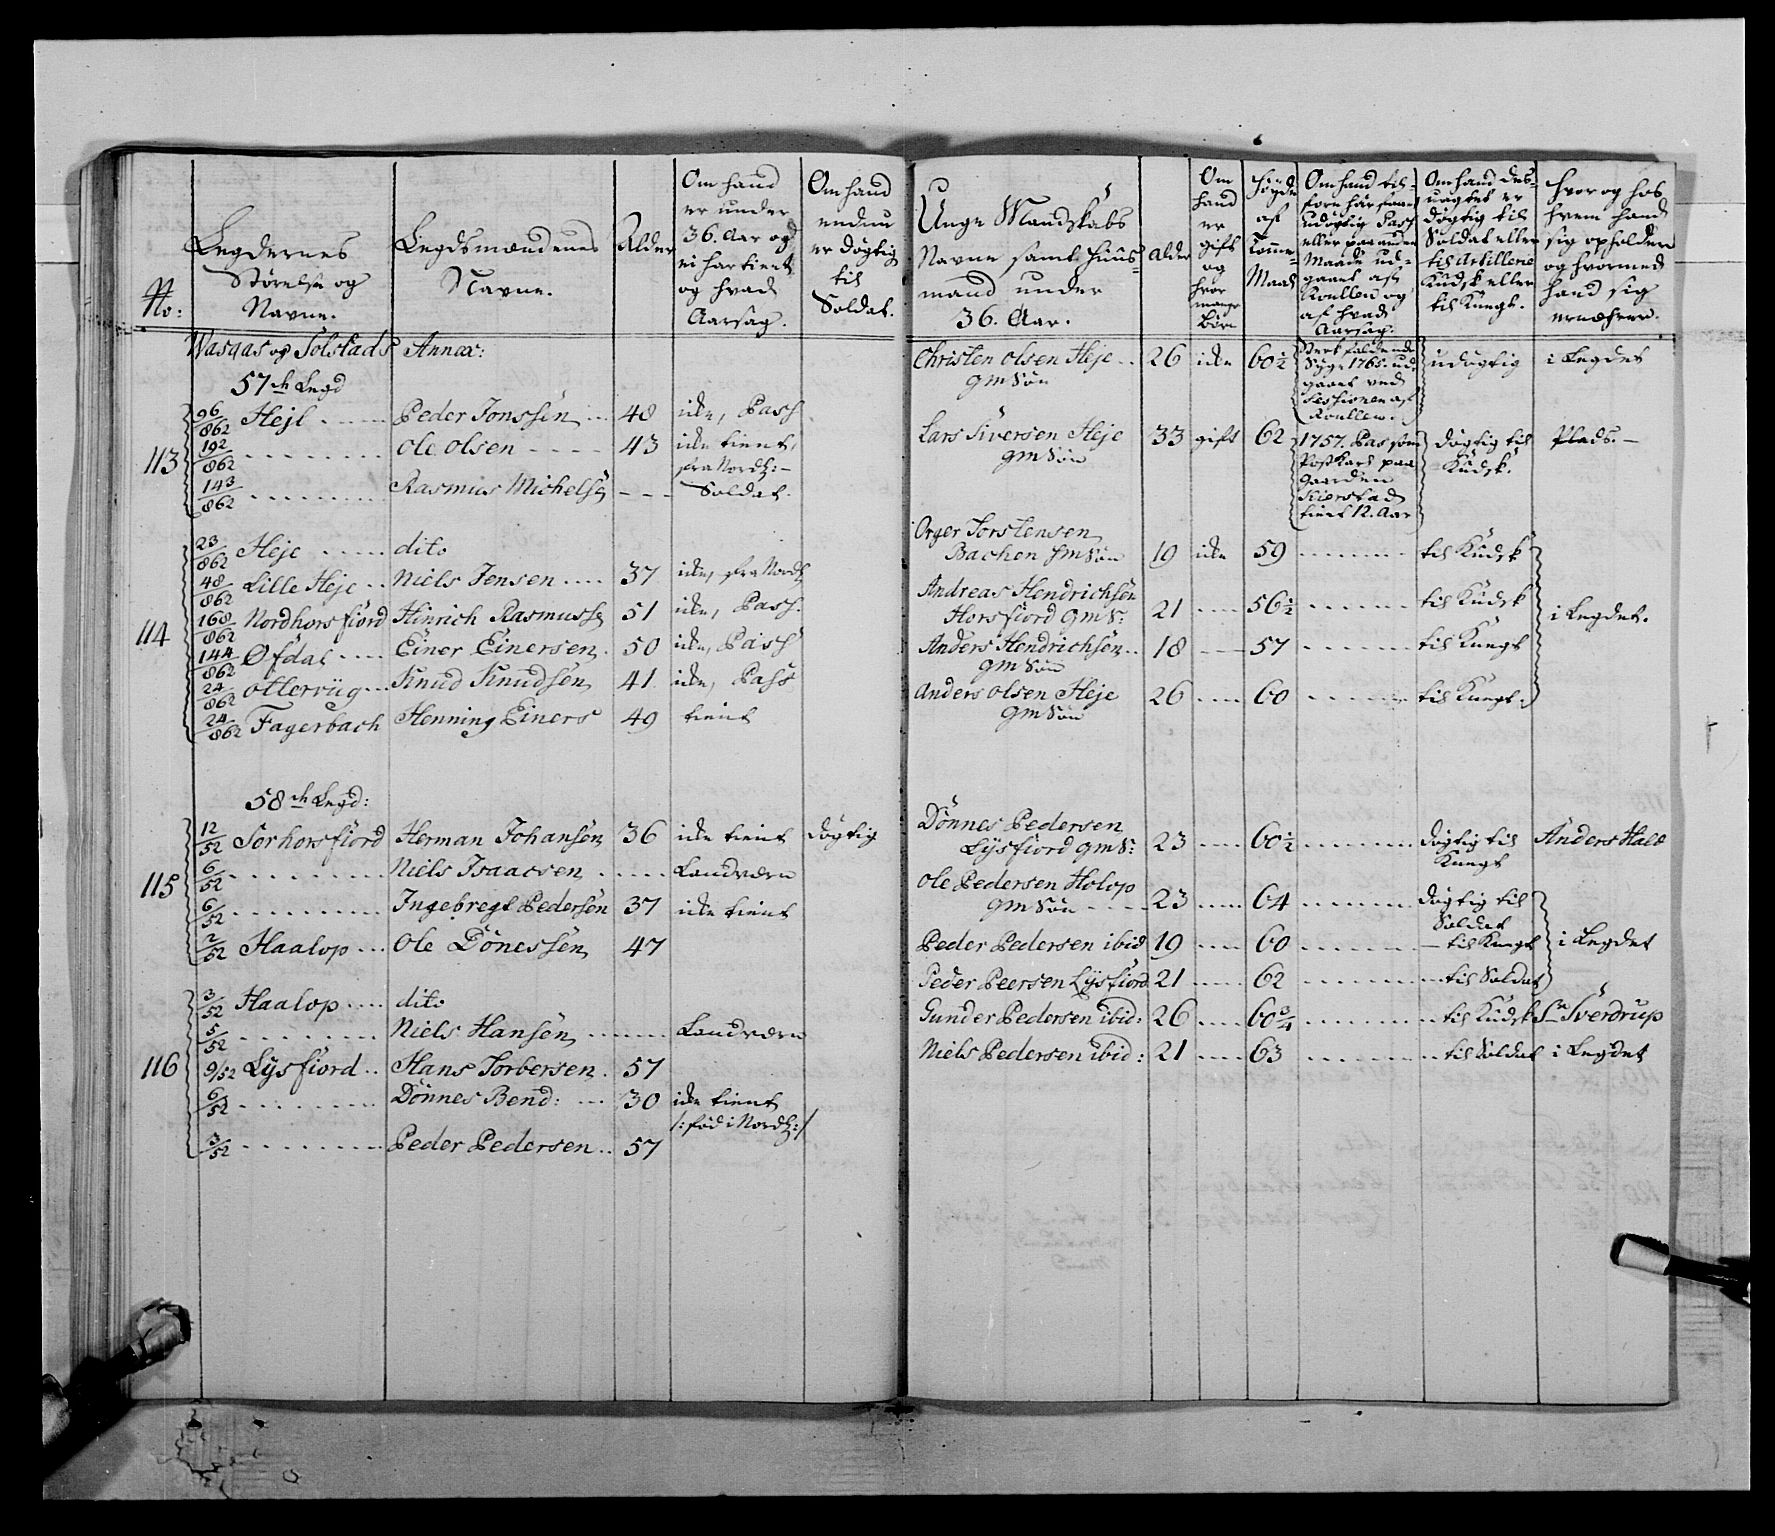 No:
Legdernes
Størelse og
Navne.
Legdsmændenes
Navne.
Alder
Om hand
er under
36. Aar og
ei har tient
og hvad
Aarsag.
Om hand
endnu
er dögtig
til
Soldat.
Wasaas og Solstads Annex:
57de Legd
113
96/862 Hejl ..... Peder Jonssen ... 48 ikke, Pass
192/862 ......... Ole Olsen ---- 43 ikke tient,
fra Nordl: -
143/862 ......... Rasmus Michelsen --- Soldat.
114
23/862 Heje ..... dito
48/862 Lille Heje .. Niels Jensen .... 37 ikke, fra Nordl:
168/862 Nordhorsfiord Hinrich Rasmuss: 51 ikke, Pass.
144/862 Øfdal .... Einer Einersen . 50 ikke, Pass
24/862 Otterviig ... Knud Knudsen 41 ikke, Pass
24/862 Fagerbach Henning Einers 49 tient
58de Legd:
115
12/52 Sörhorsfiord Herman Johansen 36 ikke tient dögtig
6/52 ......... Niels Isaacsen ..... Landværn
6/52 ......... Ingebregt Pedersen 37 ikke tient
2/52 Haalop ... Ole Dönessen 47
116
3/52 Haalop .... dito
5/52 ....... Niels Hansen ...... Landværn
9/52 Lysfiord .. Hans Torbersen . 57
6/52 ....... Dönnes Bend: ... 30 ikke tient
/: föd i Nordl: :/
3/52 ........ Peder Pedersen .. 57
Unge Mandskabs
Navne samt Huus-
mænd under
36. Aar.
Alder
Om
hand
er
gift
og
hvor
mange
Börn
Höyde
af
Tomme-
Maal
Om hand til-
forn har faaet
udögtig Pass
eller paa anden
Maade ud-
gaaet af
Roullen og
af hvad
Aarsag.
Om hand des-
uagtet er
dögtig til
Soldat eller
til Artillerie
Kudsk eller
til Knegt.
Hvor og hos
hvem hand
sig opholder
og hvormed
hand sig
ernærer.
Christen Olsen Heje .. 26 ikke 60½ udögtig i Legdet
gm Sön
Syge 1765. ud-
gaaet ved
Sessionen af
Roullen.
Lars Siversen Heje 33 gift 62 1757. Pas som dögtig til Plads. -
gm Sön
Postkarl paa Kudsk.
Gaarden
Kierstad
tient 12. Aar
Orger Torstensen
Bachen Hm Sön 19 ikke 59 ....... til Kudsk
Andreas Hendrichsen
Horsfiord gm S: 21 ..... 56½ ....... til Kudsk
i Legdet.
Anders Hendrichsen .. 18 --- 57 ...... til Knegt
gm Sön
Anders Olsen Heje 26 .... 60 ....... til Knegt.
gm Sön
Dönnes Pedersen
Lysfiord gm S: 23 .... 60½ ........ dögtig til Anders Hald
Knegt
Ole Pedersen Holop
gm Sön ---- 23 ..... 64 ....... dögtig til
Soldat
Peder Pedersen ibid 19 .... 60 ...... - til Knegt i Legdet
Peder Peersen Lysfiord 21 .... 62 ....... til Soldat
Gunder Pedersen ibid: 26 .... 60¾ ........ til Kudsk Sr Sverdrup
Niels Pedersen ibid: 21 .... 63 ....... til Soldat i Legdet